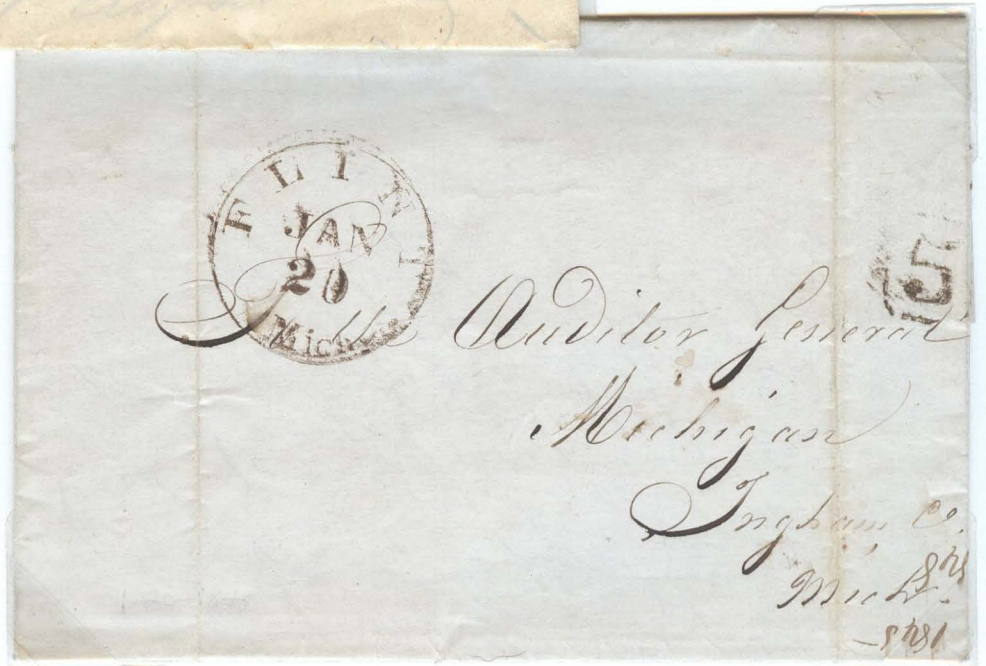 FLINT
JAN
20
Mich
5
The Auditor General
Michigan
Ingham Co.
Mich.
1848